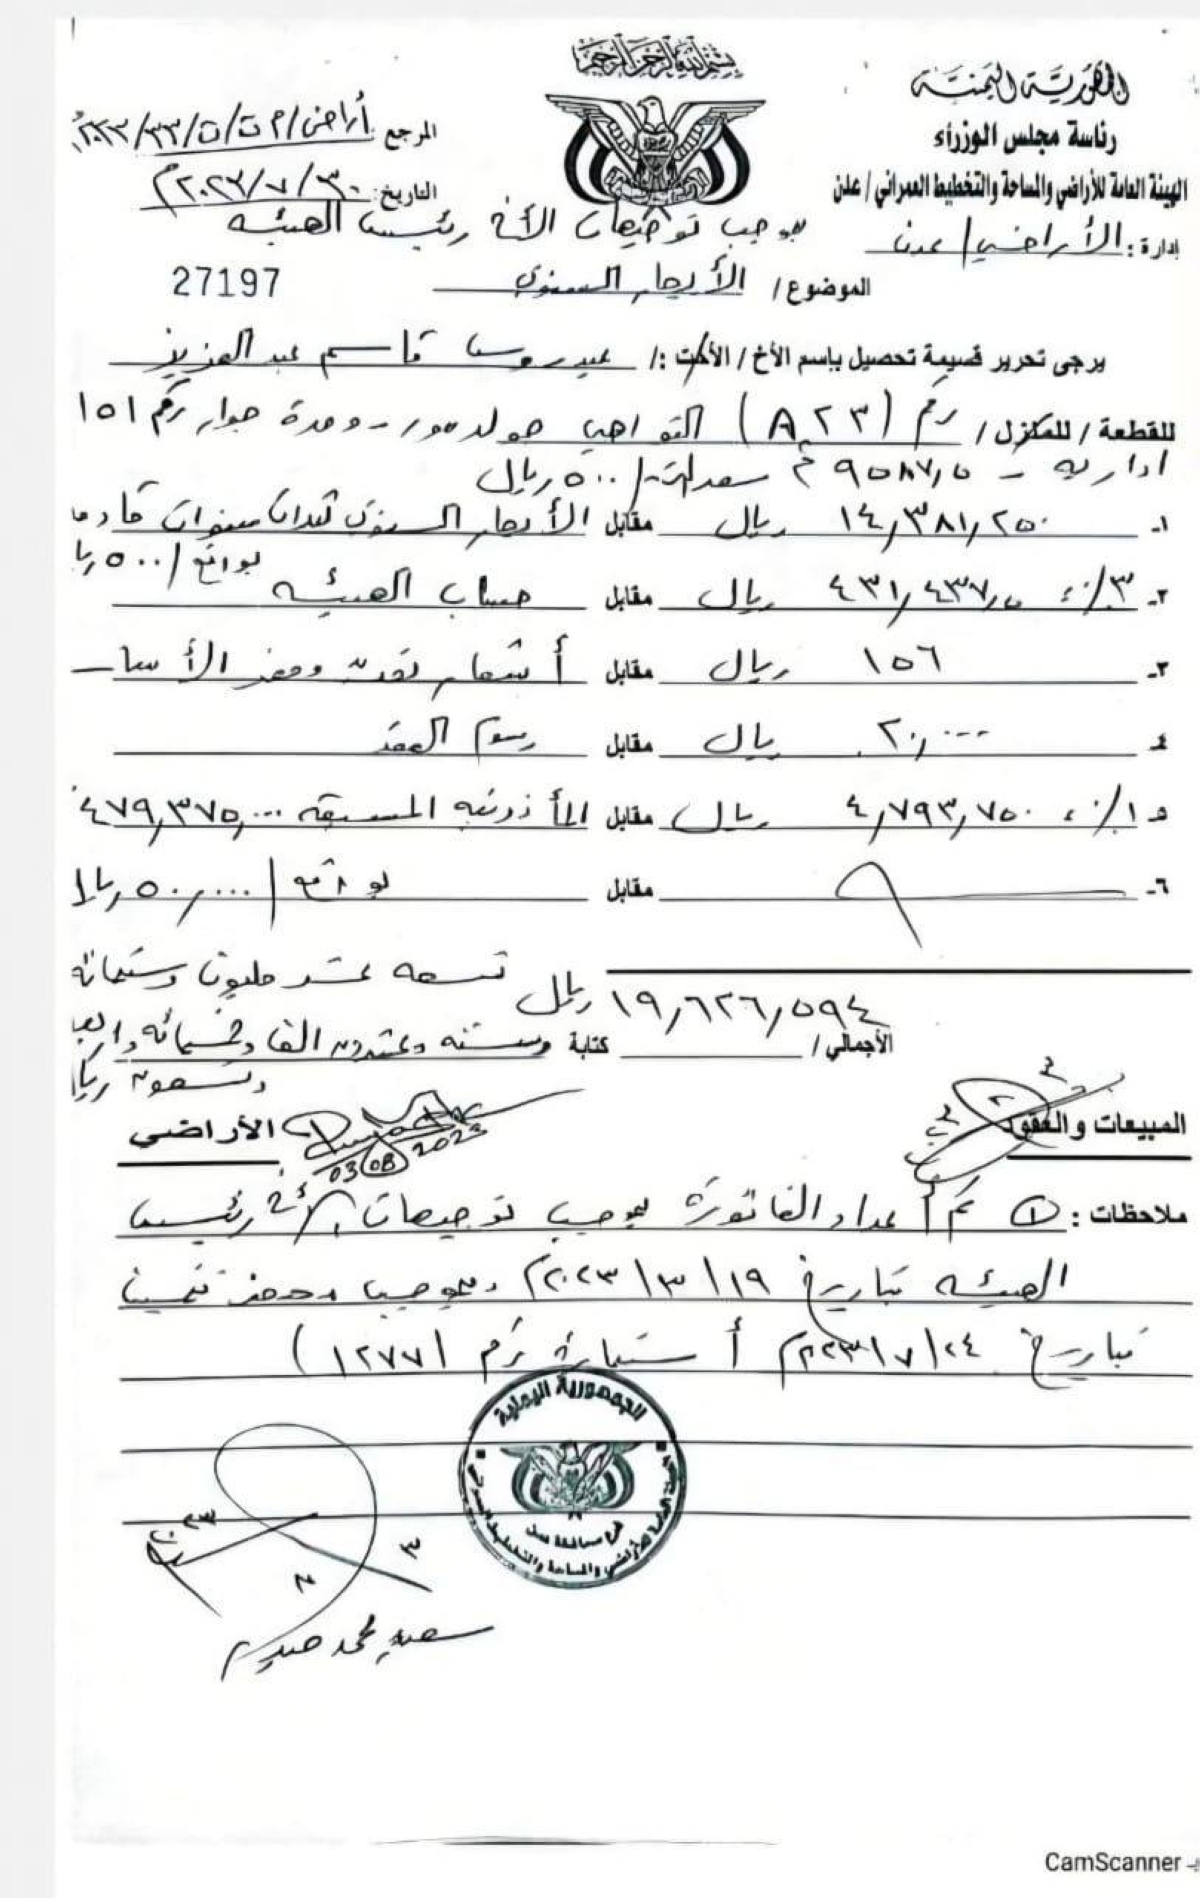 بسم الله الرحمن الرحيم
الجمهورية اليمنية
رئاسة مجلس الوزراء
الهيئة العامة للأراضي والمساحة والتخطيط العمراني / عدن
إدارة : الأراضي / عدن
المرجع : أراضي/م ت/ت/٣٣/٢٠٢٣م
التاريخ : ٣٠/٧/٢٠٢٣م
بموجب توجيهات الأخ رئيس الهيئة
الموضوع / الأيجار السنوي
27197
يرجى تحرير قسيمة تحصيل بإسم الأخ / الأخت :/ عيدروس قاسم عبدالعزيز
للقطعة / للمنزل / رقم (A ٢٣) التواهي جولدمور - وحدة جوار رقم ١٥١
ادارية - ٩٥٨٧,٥ م٢ /٥٠٠ ريال
١- ١٤,٣٨١,٢٥٠ ريال مقابل الأيجار السنوي ثلاث سنوات قادمة
بواقع / ٥٠٠ ريا
٢- ٣٪ ٤٣١,٤٣٧,٥ ريال مقابل حساب الهيئة
٣- ١٥٦ ريال مقابل
٤- ٢٠,٠٠٠ ريال مقابل رسوم العقد
٥- ١٪ ٤,٧٩٣,٧٥٠ ريال مقابل المأذونية المسبقة ٤٧٩,٣٧٥,٠٠٠
٦- مقابل بواقع / ٥٠,٠٠٠ ريال
الأجمالي / ١٩,٦٢٦,٥٩٤ ريال كتابة تسعة عشر مليون وستمائة
وستة وعشرون الفا وخمسمائة واربعة
وتسعون ريال
المبيعات والعقود
الأراضي
03/08/2023
ملاحظات : ① تم أعداد الفاتورة بموجب توجيهات الأخ رئيس
الهيئة بتاريخ ١٩/٣/٢٠٢٣م وبموجب محضر تثمين
بتاريخ ٢٤/٧/٢٠٢٣م أستمارة رقم (١٢٧٧)
الجمهورية اليمنية
الهيئة العامة للأراضي والمساحة والتخطيط العمراني
فرع محافظة عدن
CamScanner